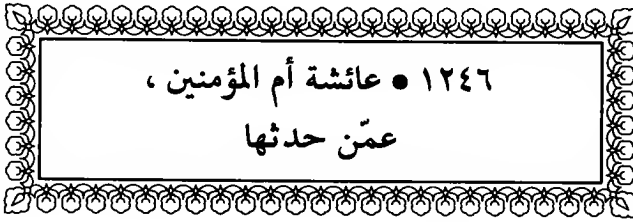 ١٢٤٦ • عائشة أم المؤمنين ،
عمّن حدثها